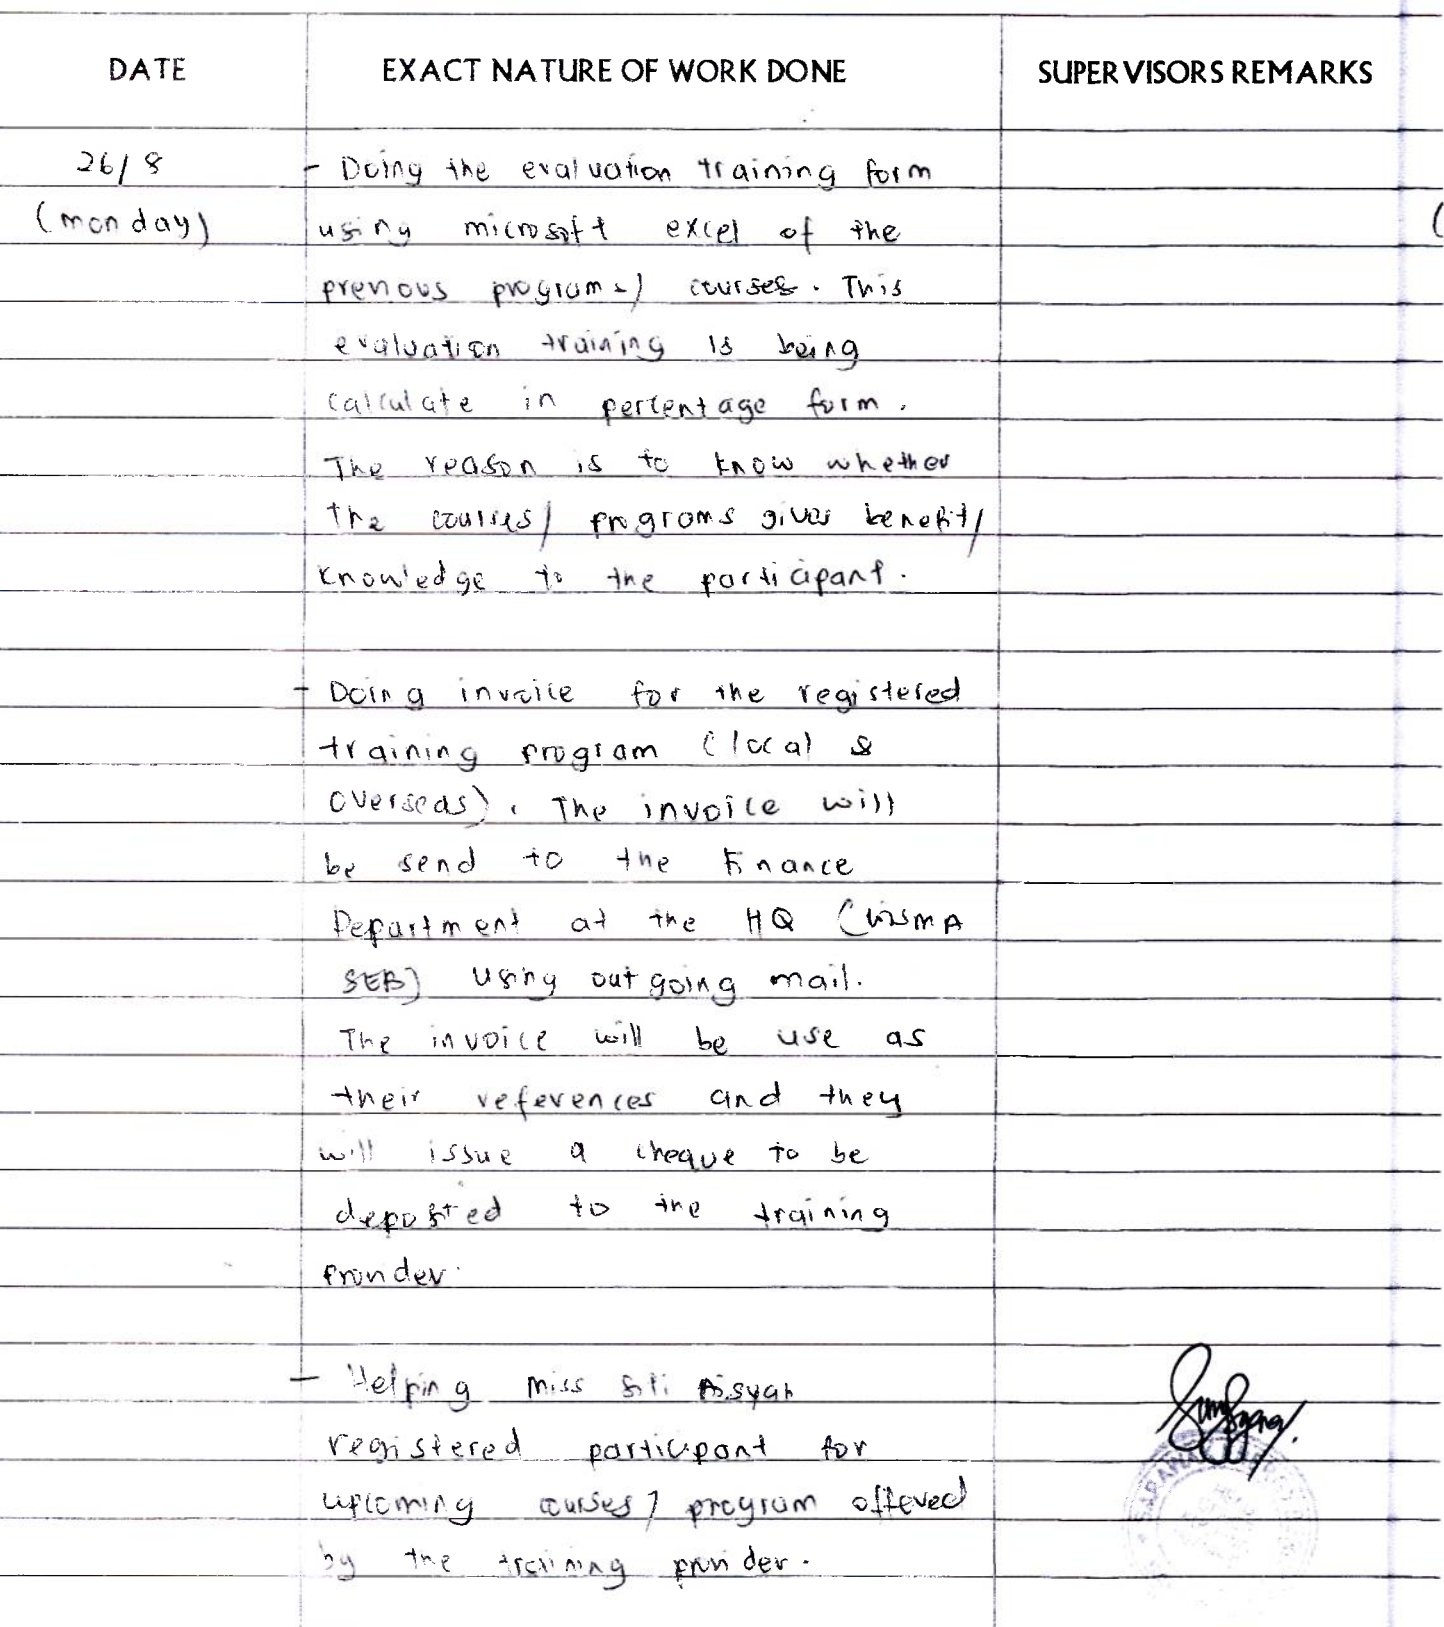 DATE EXACT NATURE OF WORK DONE SUPERVISORS REMARKS
26/8 - Doing the evaluation training form
(monday) using microsoft excel of the
previous programs/ courses. This
evaluation training is being
calculate in percentage form.
The reason is to know whether
the courses/ programs gives benefit/
knowledge to the participant.
- Doing invoice for the registered
training program (local &
overseas). The invoice will
be send to the Finance
Department at the HQ (WISMA
SEB) using outgoing mail.
The invoice will be use as
their references and they
will issue a cheque to be
deposited to the training
provider.
- Helping Miss Siti Aisyah
registered participant for
upcoming courses/ program offered
by the training provider.